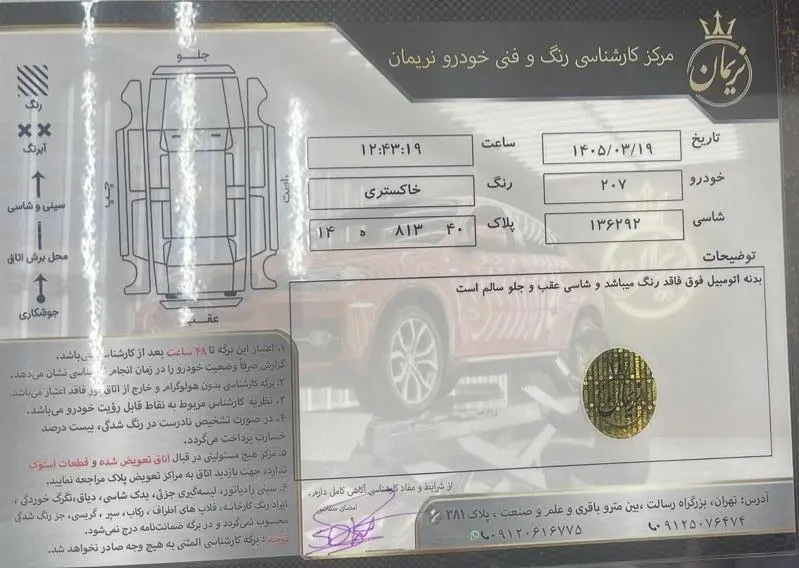 مرکز کارشناسی رنگ و فنی خودرو نریمان
نریمان
تاریخ ۱۴۰۵/۰۳/۱۹ ساعت ۱۲:۴۳:۱۹
خودرو ۲۰۷ رنگ خاکستری
شاسی ۱۳۶۲۹۲ پلاک ۴۰ ۸۱۳ ه ۱۴
توضیحات
بدنه اتومبیل فوق فاقد رنگ میباشد و شاسی عقب و جلو سالم است
نریمان
جلو
چپ
راست
عقب
رنگ
آبرنگ
سینی و شاسی
محل برش اتاق
جوشکاری
۱. اعتبار این برگه تا ۴۸ ساعت بعد از کارشناسی می‌باشد.
گزارش صرفاً وضعیت خودرو را در زمان انجام کارشناسی نشان می‌دهد.
۲. برگه کارشناسی بدون هولوگرام و خارج از اتاق نور فاقد اعتبار می‌باشد.
۳. نظریه کارشناس مربوط به نقاط قابل رؤیت خودرو می‌باشد.
۴. در صورت تشخیص نادرست در رنگ شدگی، بیست درصد
خسارت پرداخت می‌گردد.
۵. مرکز هیچ مسئولیتی در قبال اتاق تعویض شده و قطعات استوک
ندارد، جهت بازدید اتاق به مراکز تعویض پلاک مراجعه نمایید.
۶. سینی رادیاتور، لیسه‌گیری جزئی، یدک شاسی، دیاق، تگرگ خوردگی،
ایراد رنگ کارخانه، قلاب های اطراف، رکاب، سپر، گریسی، جز رنگ شدگی
محسوب نمی‌گردد و در برگه ضمانت‌نامه درج نمی‌شود.
توجه: برگه کارشناسی المثنی به هیچ وجه صادر نخواهد شد.
از شرایط و مفاد کارشناسی آگاهی کامل دارم.
امضای متقاضی
آدرس: تهران، بزرگراه رسالت، بین مترو باقری و علم و صنعت، پلاک ۳۸۱
۰۹۱۲۵۰۷۶۴۷۴ ۰۹۱۲۰۶۱۶۷۷۵